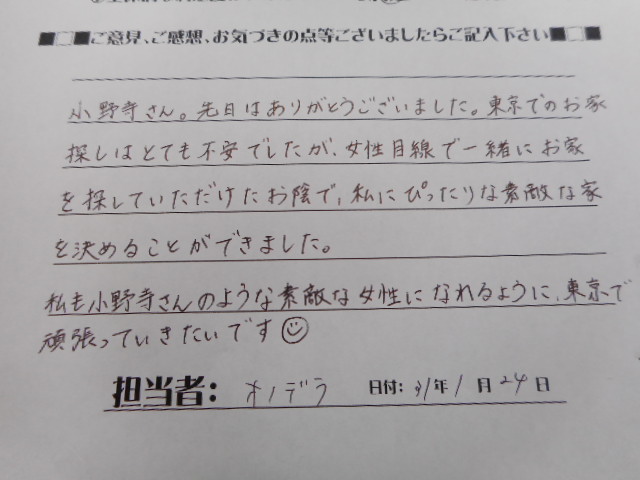 ■□■ご意見、ご感想、お気づきの点等ございましたらご記入下さい■□■
小野寺さん。先日はありがとうございました。東京でのお家
探しはとても不安でしたが、女性目線で一緒にお家
を探していただけたお陰で、私にぴったりな素敵な家
を決めることができました。
私も小野寺さんのような素敵な女性になれるように、東京で
頑張っていきたいです☺
担当者: オノデラ 日付: 31年1月24日